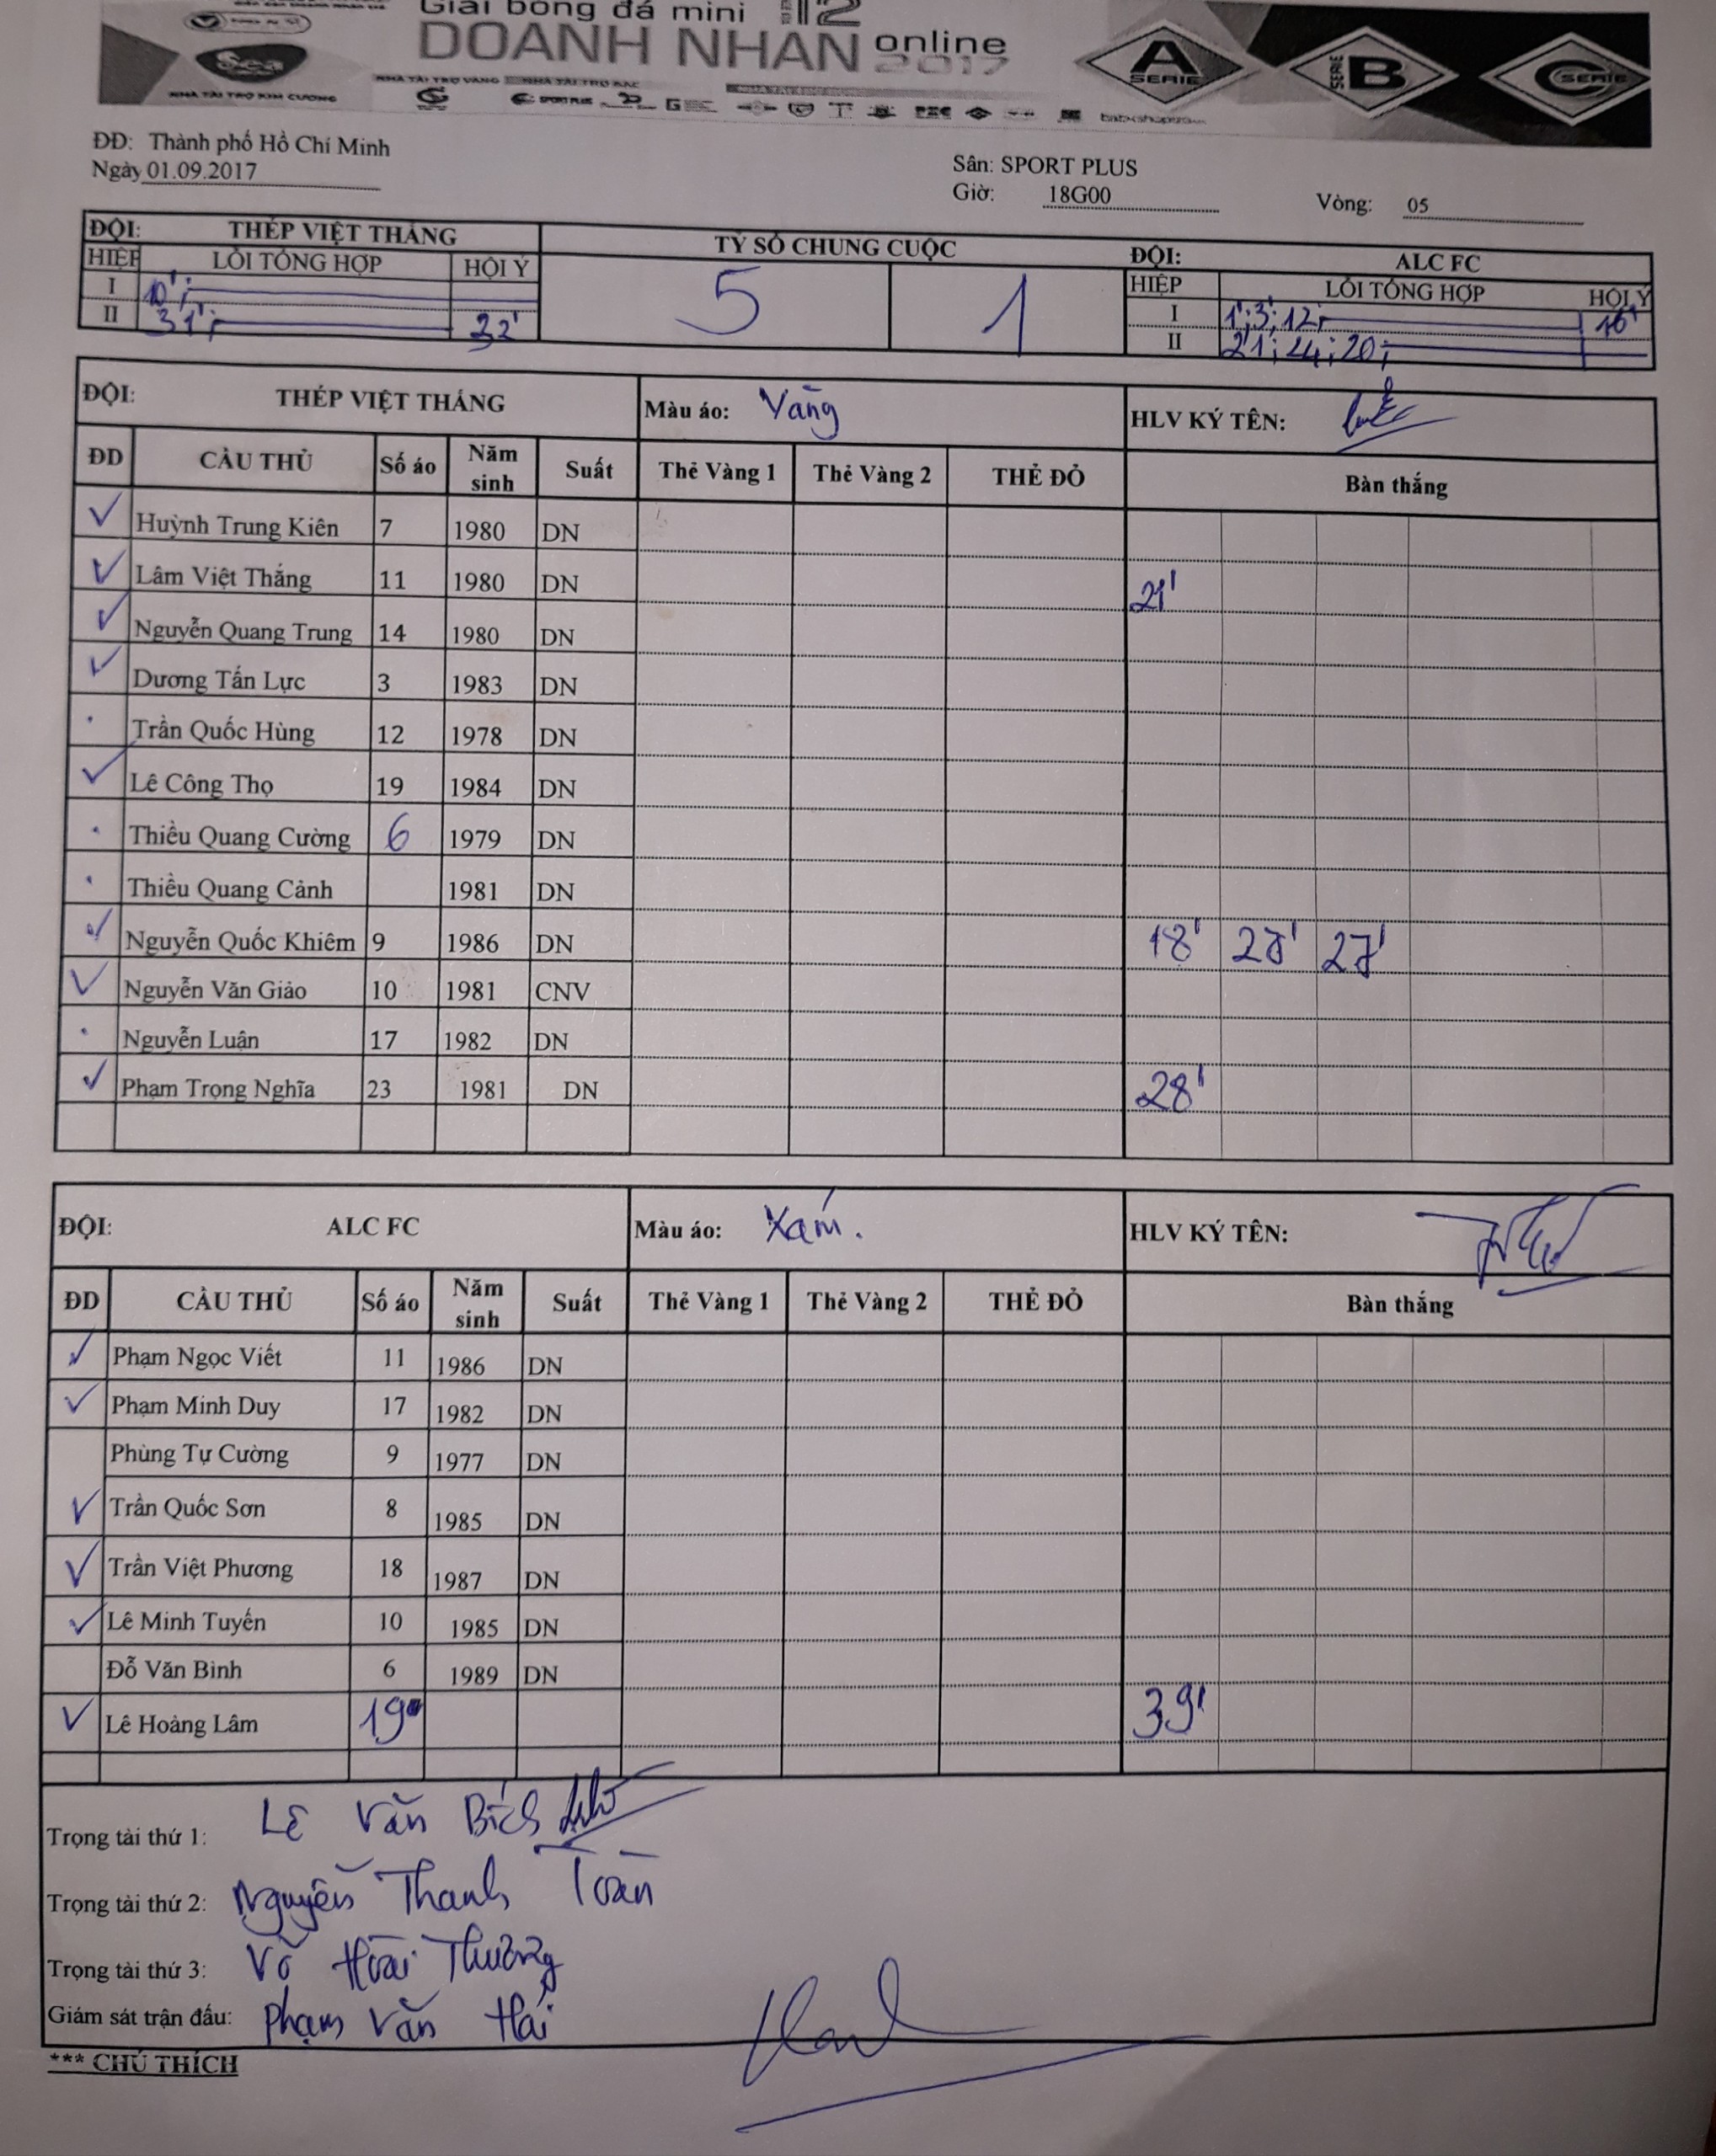 Giải bóng đá mini 12
DOANH NHÂN online 2017
NHÀ TÀI TRỢ KIM CƯƠNG
Sea
NHÀ TÀI TRỢ VÀNG NHÀ TÀI TRỢ BẠC
SPORT PLUS
A SERIE SERIE B C SERIE
ĐĐ: Thành phố Hồ Chí Minh
Ngày 01.09.2017
Sân: SPORT PLUS
Giờ: 18G00 Vòng: 05
ĐỘI: THÉP VIỆT THẮNG TỶ SỐ CHUNG CUỘC ĐỘI: ALC FC
HIỆP LỖI TỔNG HỢP HỘI Ý 5 1 HIỆP LỖI TỔNG HỢP HỘI Ý
I 10'; I 1'; 3'; 12; 16'
II 31'; 32' II 21; 24; 20;
ĐỘI: THÉP VIỆT THẮNG Màu áo: Vàng HLV KÝ TÊN:
ĐD CẦU THỦ Số áo Năm sinh Suất Thẻ Vàng 1 Thẻ Vàng 2 THẺ ĐỎ Bàn thắng
Huỳnh Trung Kiên 7 1980 DN
Lâm Việt Thắng 11 1980 DN 21'
Nguyễn Quang Trung 14 1980 DN
Dương Tấn Lực 3 1983 DN
Trần Quốc Hùng 12 1978 DN
Lê Công Thọ 19 1984 DN
Thiều Quang Cường 6 1979 DN
Thiều Quang Cảnh 1981 DN
Nguyễn Quốc Khiêm 9 1986 DN 18' 27'
Nguyễn Văn Giảo 10 1981 CNV
Nguyễn Luận 17 1982 DN
Phạm Trọng Nghĩa 23 1981 DN 28'
ĐỘI: ALC FC Màu áo: Xám. HLV KÝ TÊN:
ĐD CẦU THỦ Số áo Năm sinh Suất Thẻ Vàng 1 Thẻ Vàng 2 THẺ ĐỎ Bàn thắng
Phạm Ngọc Viết 11 1986 DN
Phạm Minh Duy 17 1982 DN
Phùng Tự Cường 9 1977 DN
Trần Quốc Sơn 8 1985 DN
Trần Việt Phương 18 1987 DN
Lê Minh Tuyến 10 1985 DN
Đỗ Văn Bình 6 1989 DN
Lê Hoàng Lâm 19 39'
Trọng tài thứ 1: Lê Văn Bích
Trọng tài thứ 2: Nguyễn Thanh Toàn
Trọng tài thứ 3: Võ Hoài Thương
Giám sát trận đấu: Phạm Văn Hải
*** CHÚ THÍCH